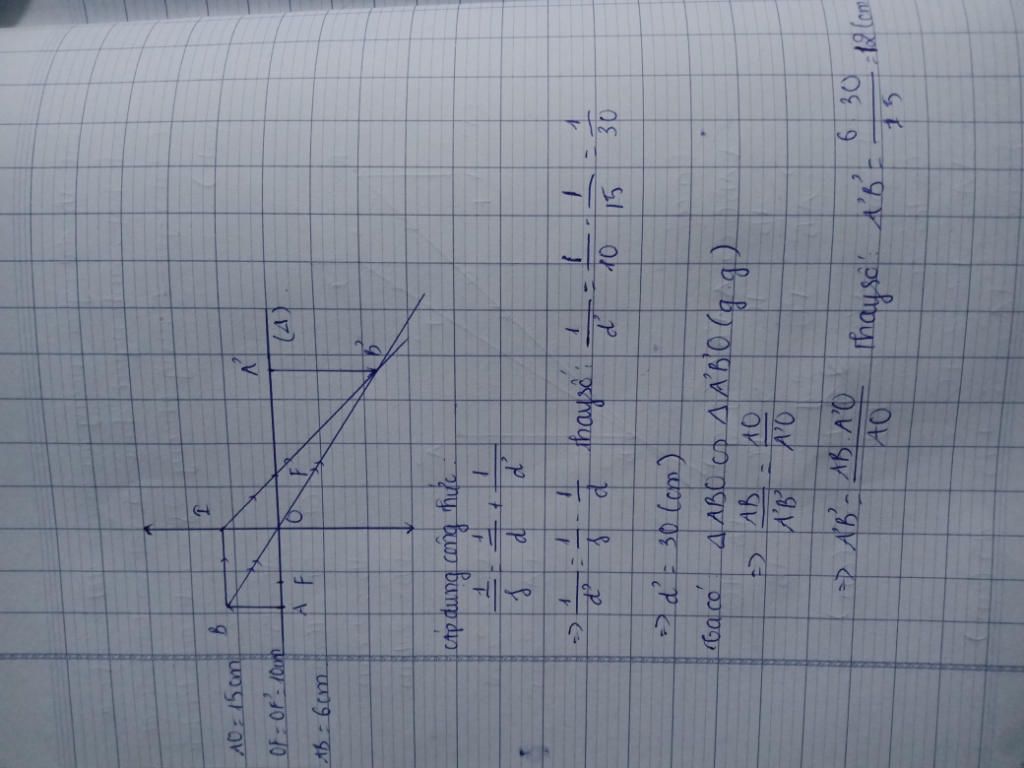 AO = 15cm
OF = OF' = 10cm
AB = 6cm
B
I
A
F
O
F'
A'
(Δ)
B'
Áp dụng công thức:
1/f = 1/d + 1/d'
=> 1/d' = 1/f - 1/d thay số: 1/d' = 1/10 - 1/15 = 1/30
=> d' = 30 (cm)
Ta có: ΔABO ∽ ΔA'B'O (g.g)
=> AB/A'B' = AO/A'O
=> A'B' = AB.A'O/AO thay số: A'B' = 6.30/15 = 12(cm